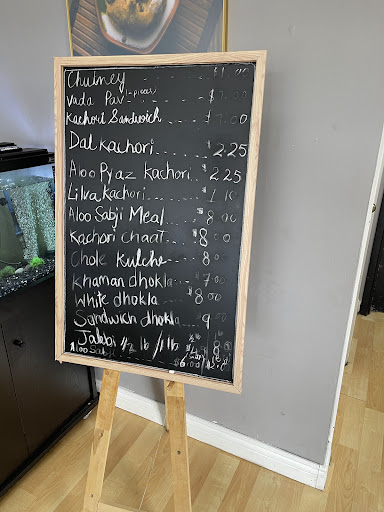 Chutney .... $1.00
Vada Pav - .... $ .00
Kachori Sandwich .... $ .00
Dal Kachori .... $2.25
Aloo Pyaz kachori .. $2.25
Lilva kachori ....
Aloo Sabji Meal ... $8.00
Kachori chaat ... $8.00
Chole kulche ... $8.00
Khaman dhokla ... $7.00
White dhokla .... $8.00
Sandwich dhokla $9
Jalebi 1/2 lb / 1 lb
Aloo Sabji